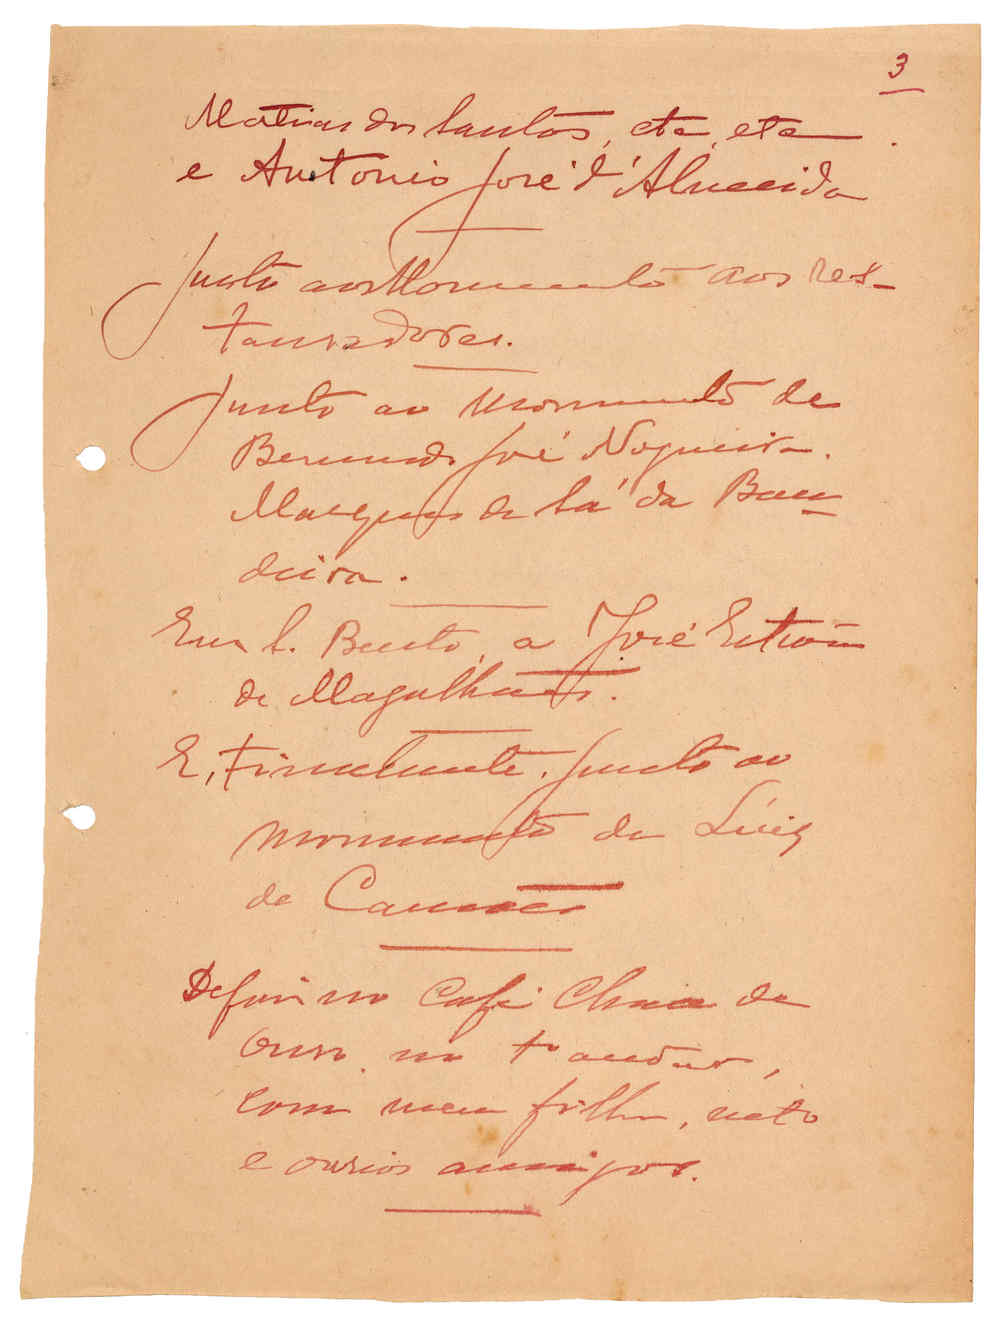 3
Matias dos Santos, etc, etc
e Antonio José d'Almeida
Junto ao Monumento aos Res-
tauradores.
Junto ao monumento de
Bernardo José Nogueira.
Marques de Sá da Ban-
deira.
Em S. Bento, a José Estevão
de Magalhães.
E, Finalmente, junto ao
monumento de Luiz
de Camões
Defois no Café Chave de
Ouro, no 1º andar,
com meu filho, neto
e varios amigos.